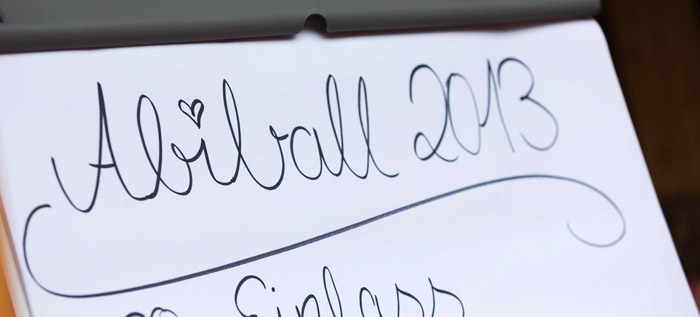 Abiball 2013
Einlass